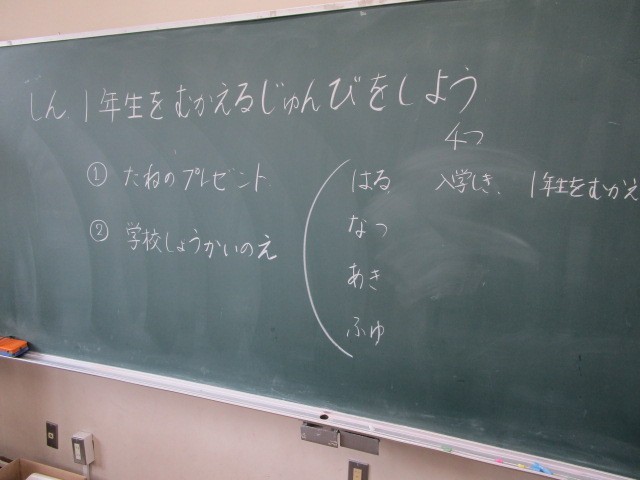 しん1年生をむかえるじゅんびをしよう
4つ
① たねのプレゼント
② 学校しょうかいのえ
はる 入学しき、1年生をむかえ
なつ
あき
ふゆ